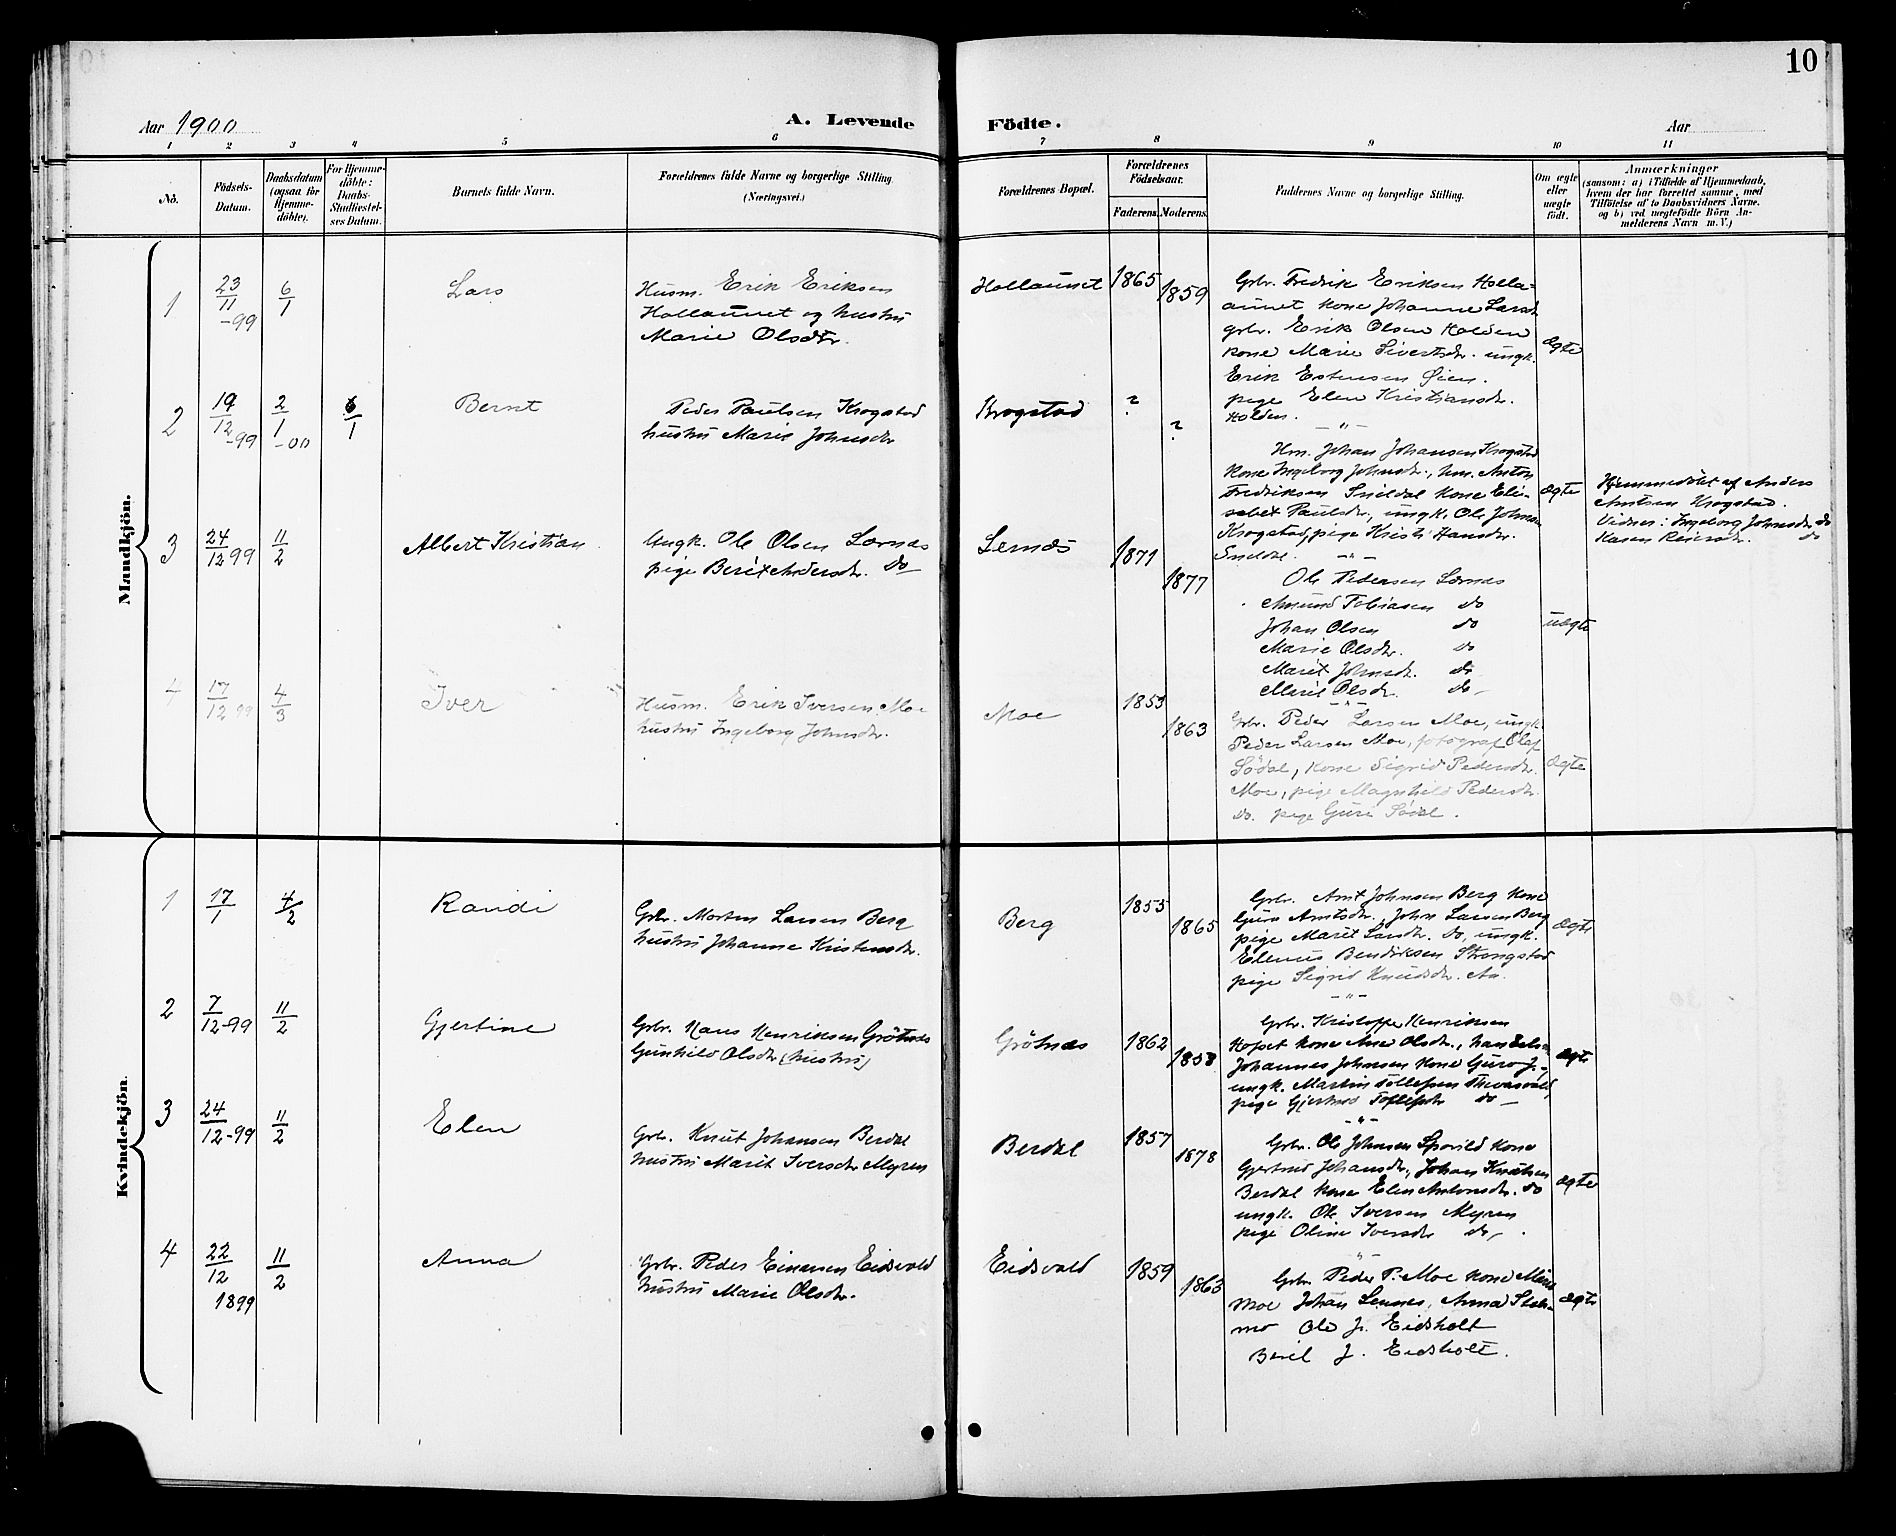 10
Aar 1900
A. Levende
Födte.
Aar
1
2
3
4
5
6
7
8
9
10
11
No.
Födsels-
Datum.
Daabsdatum
(ogsaa for
Hjemme-
döbte).
For Hjemme-
döbte:
Daabs-
Stadfæstel-
ses Datum.
Barnets fulde Navn.
Forældrenes fulde Navne og borgerlige Stilling
(Næringsvei.)
Forældrenes Bopæl.
Forældrenes
Födselsaar.
Faderens.
Moderens.
Faddernes Navne og borgerlige Stilling.
Om ægte
eller
uægte
födt.
Anmærkninger
(saasom: a) i Tilfælde af Hjemmedaab,
hvem der har forrettet samme, med
Tilföielse af to Daabsvidners Navne.
og b) ved uægtefödte Börn An-
melderens Navn m. V.)
Mandkjön.
1
23/11 -99
6/1
Lars
Husm. Erik Eriksen
Hollaunet og hustru
Marie Olsdtr.
Hollaunet
1865
1859
Gbr. Fredrik Eriksen Holla-
aunet kone Johanne Larsd.
gbr. Erik Olsen Holden
kone Marie Sivertsdr. ungk.
Erik Estensen Øien.
pige Elen Kristiansdr.
Holden.
Ægte
2
19/12 -99
2/1 -00
6/1
Bernt
Peder Paulsen Krogstad
hustru Marie Johnsdr
Krogstad
?
?
-"-
Hm. Johan Johansen Krogstad
kone Ingeborg Johnsdr., hm. Anton
Fredriksen Snildal kone Eli-
sabet Paulsdr., ungk. Ole Johns
Krogstad, pige Kristi Hansdr.
Snildal.
Ægte
Hjemmedöbt af Anders
Arntsen Krogstad.
Vidner: Ingeborg Johnsdr do
Karen Reiersdr. do
3
24/12 99
11/2
Albert Kristian
Ungk. Ole Olsen Lernæs
pige Berit Andersdr. do
Lernæs
1871
1877
-"-
Ole Pedersen Lernæs
Amund Tobiasen do
Johan Olsen do
Marie Olsdr. do
Marit Johnsdr. do
Marie Olsdr. do-
uægte
4
17/12 99
4/3
Iver
Husm. Erik Iversen Moe
hustru Ingeborg Johnsdr.
Moe
1853
1863
-"-
Gbr. Peder Larsen Moe, ungk.
Peder Larsen Moe, fotograf Olaf
Södal, kone Sigrid Pedersdr.
Moe, pige Magnhild Pedersdr.
do. pige Guri Södal.
Ægte
Kvindekjön.
1
17/1
4/2
Randi
Gbr. Morten Larsen Berg
hustru Johanne Kristensdr.
Berg
1855
1865
Gbr. Arnt Johnsen Berg kone
Guru Arntsdr., John Larsen Berg
pige Marit Larsdr. do, ungk.
Elenus Bendriksen Strengstad
pige Sigrid Knudsdr. Aa.
Ægte
2
7/12 -99
11/2
Gjertine
Gbr. Hans Henriksen Grötnæs
Gunhild Olsdr (hustru)
Grötnæs
1862
1858
-"-
Gbr. Kristoffer Henriksen
Hopet kone Ane Olsdr., handelsm
Johannes Johnsen kone Guro J.,
ungk. Martin Tollefsen
pige Gjertrud Tollefsdr do -
Ægte
3
24/12 -99
11/2
Elen
Gbr. Knut Johansen Berdal
hustru Marit Iversdr Myren
Berdal
1857
1878
-"-
Gbr. Ole Johnsen Sporild kone
Gjertrud Johansdr., Johan Knutsen
Berdal kone Elen Antonsdr. do
ungk. Ole Iversen Myren
pige Oline Iversdr do-.
Ægte
4
22/12 1899
11/2
Anna
Gbr. Peder Einarsen Eidsvold
hustru Marie Olsdr.
Eidsvold
1859
1863
-"-
Gbr Peder P. Moe kone
Moe Johan Lernes, Anna
mo Ole J. Eidsholt
Beret J. Eidsholt.
Ægte